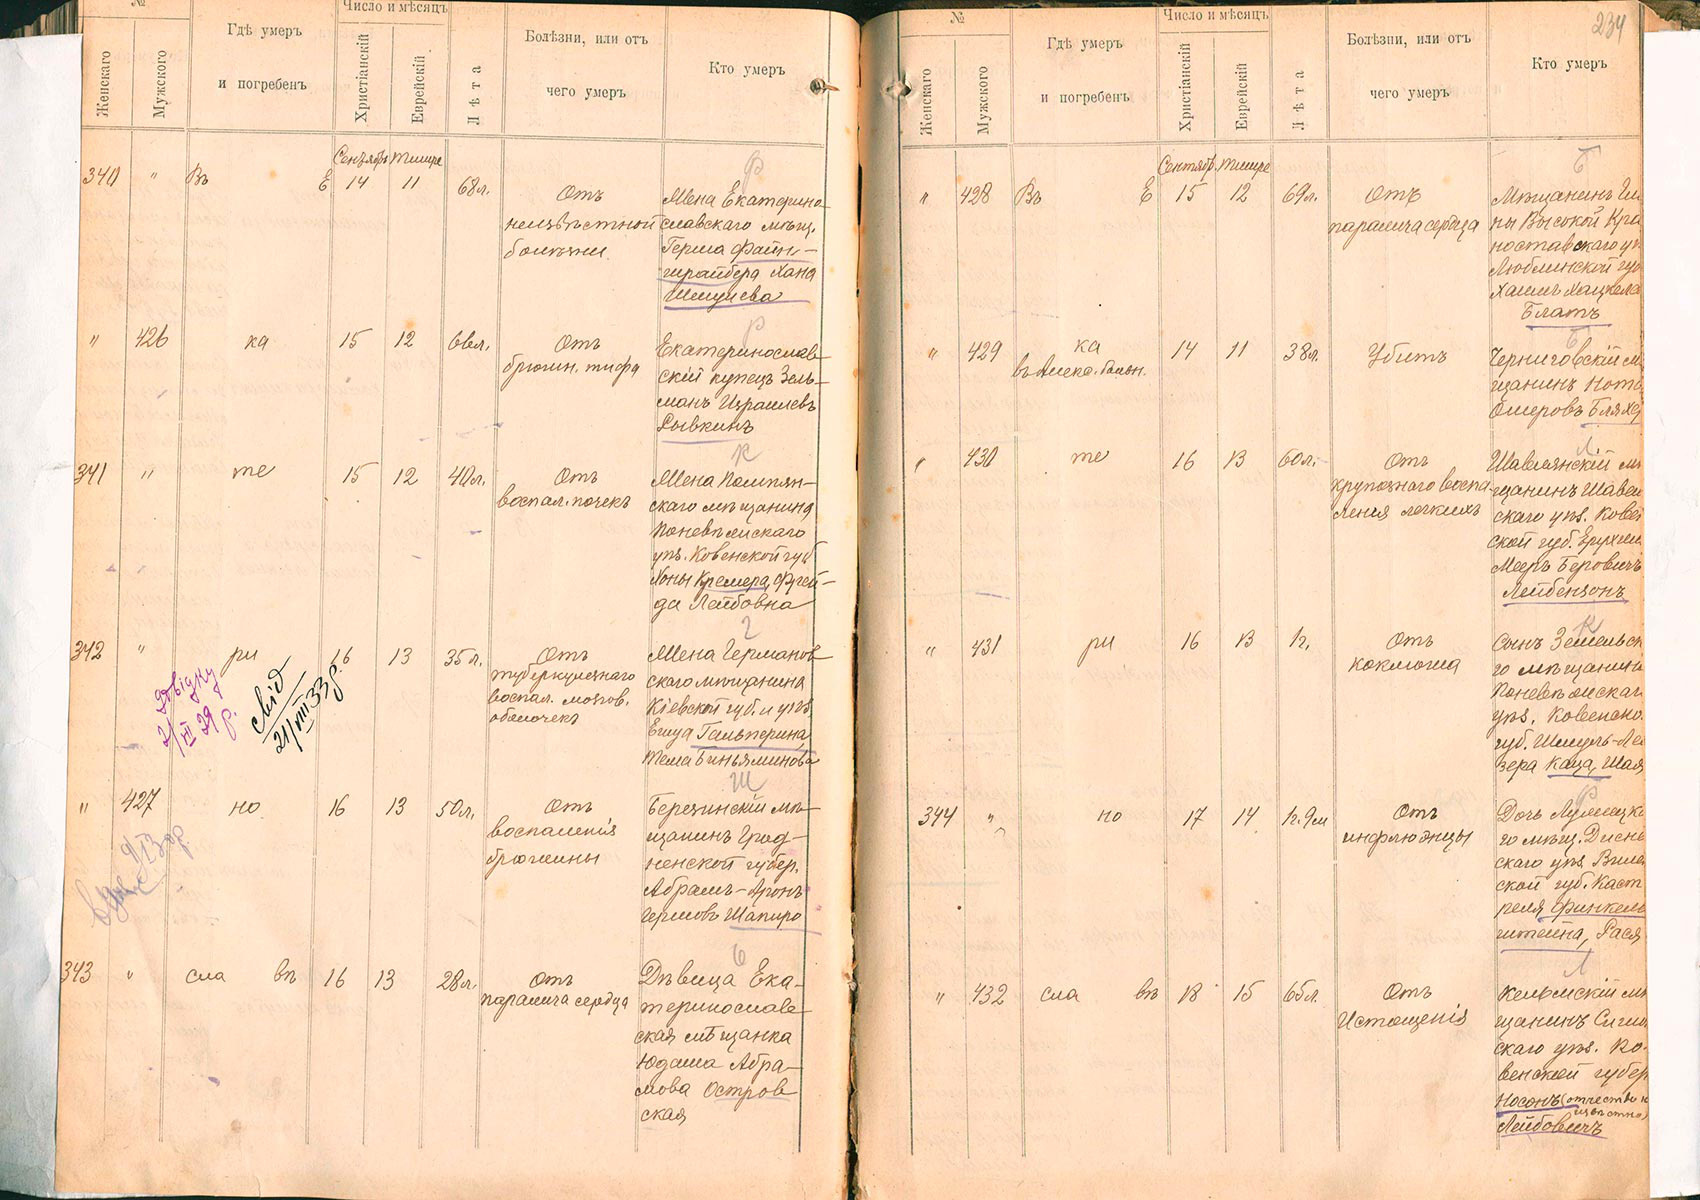 №
Число и мѣсяцъ
Женскаго
Мужского
Гдѣ умеръ
и погребенъ
Христіанскій
Еврейскій
Лѣта
Болѣзни, или отъ
чего умеръ
Кто умеръ
Сентябрь Тишре
340 " Въ Е 14 11 68л.
Отъ
неизвѣстной
болѣзни
Ф
Жена Екатерино-
славскаго мѣщ.
Герша Файн-
шрайбера Хана
Шмулева
" 426 ка 15 12 66л.
Отъ
брюшн. тифа
Р
Екатеринослав-
скій купецъ Зель-
манъ Израилевъ
Рывкинъ
341 " те 15 12 40л.
Отъ
воспал. почекъ
К
Жена Помпян-
скаго мѣщанина
Поневѣжскаго
уѣз. Ковенской губ.
Хоны Кремера, Фрей-
да Лейбовна
342 " ри 16 13 35л.
Отъ
туберкулезнаго
воспал. мозгов.
оболочекъ
Г
Жена Германов-
скаго мѣщанина
Кіевской губ. и уѣз.
Гальперина,
Тема Биньяминова
довідку
2/III 29 р.
свід
21/VIII 33 р.
" 427 но 16 13 50л.
Отъ
воспаленія
брюшины
Ш
Березинскій мѣ-
щанинъ Грод-
ненской губер.
Абрамъ-Аронъ
Гершовъ Шапиро
343 " сла въ 16 13 28л.
Отъ
паралича сердца
О
Дѣвица Ека-
теринослав-
ская мѣщанка
Юдаша Абра-
мова Остров
ская
234
№
Число и мѣсяцъ
Женскаго
Мужского
Гдѣ умеръ
и погребенъ
Христіанскій
Еврейскій
Лѣта
Болѣзни, или отъ
чего умеръ
Кто умеръ
Сентябрь Тишре
" 428 Въ Е 15 12 69л.
Отъ
паралича сердца
Б
Мѣщанинъ
ны Высокой Кра
ноставскаго уѣ
Люблинской гу
Хаимъ Хацкеле
Блатъ
" 429 ка 14 11 38л.
в Алекс. больн.
Убитъ
Б
Черниговскій мѣ
щанинъ Нота
Ошеровъ Бляхе
" 430 те 16 13 60л.
Отъ
крупознаго воспа-
ленія легкихъ
Л
Шавлянскій мѣ
щанинъ Шавел
скаго уѣз. Ковен
ской губ.
Мееръ Беровичъ
Лейбензонъ
" 431 ри 16 13 1г.
Отъ
коклюша
К
Сынъ Земельск
го мѣщанина
Поневѣжскаг
уѣз. Ковенско.
губ. Шмуль-Лей
зера Каца, Шая
344 " но 17 14 1г. 9м
Отъ
инфлюэнцы
Ф
Дочь Лужецка
го мѣщ. Дисне
скаго уѣз. Вилен
ской губ. Каст
реля Финкель
штейна, Рася
" 432 сла въ 18 15 65л.
Отъ
Истощенія
Л
Кельмскій мѣ
щанинъ
скаго уѣз. Ко-
венской губер
Носонъ (отчество н
извѣстно)
Лейбовичъ